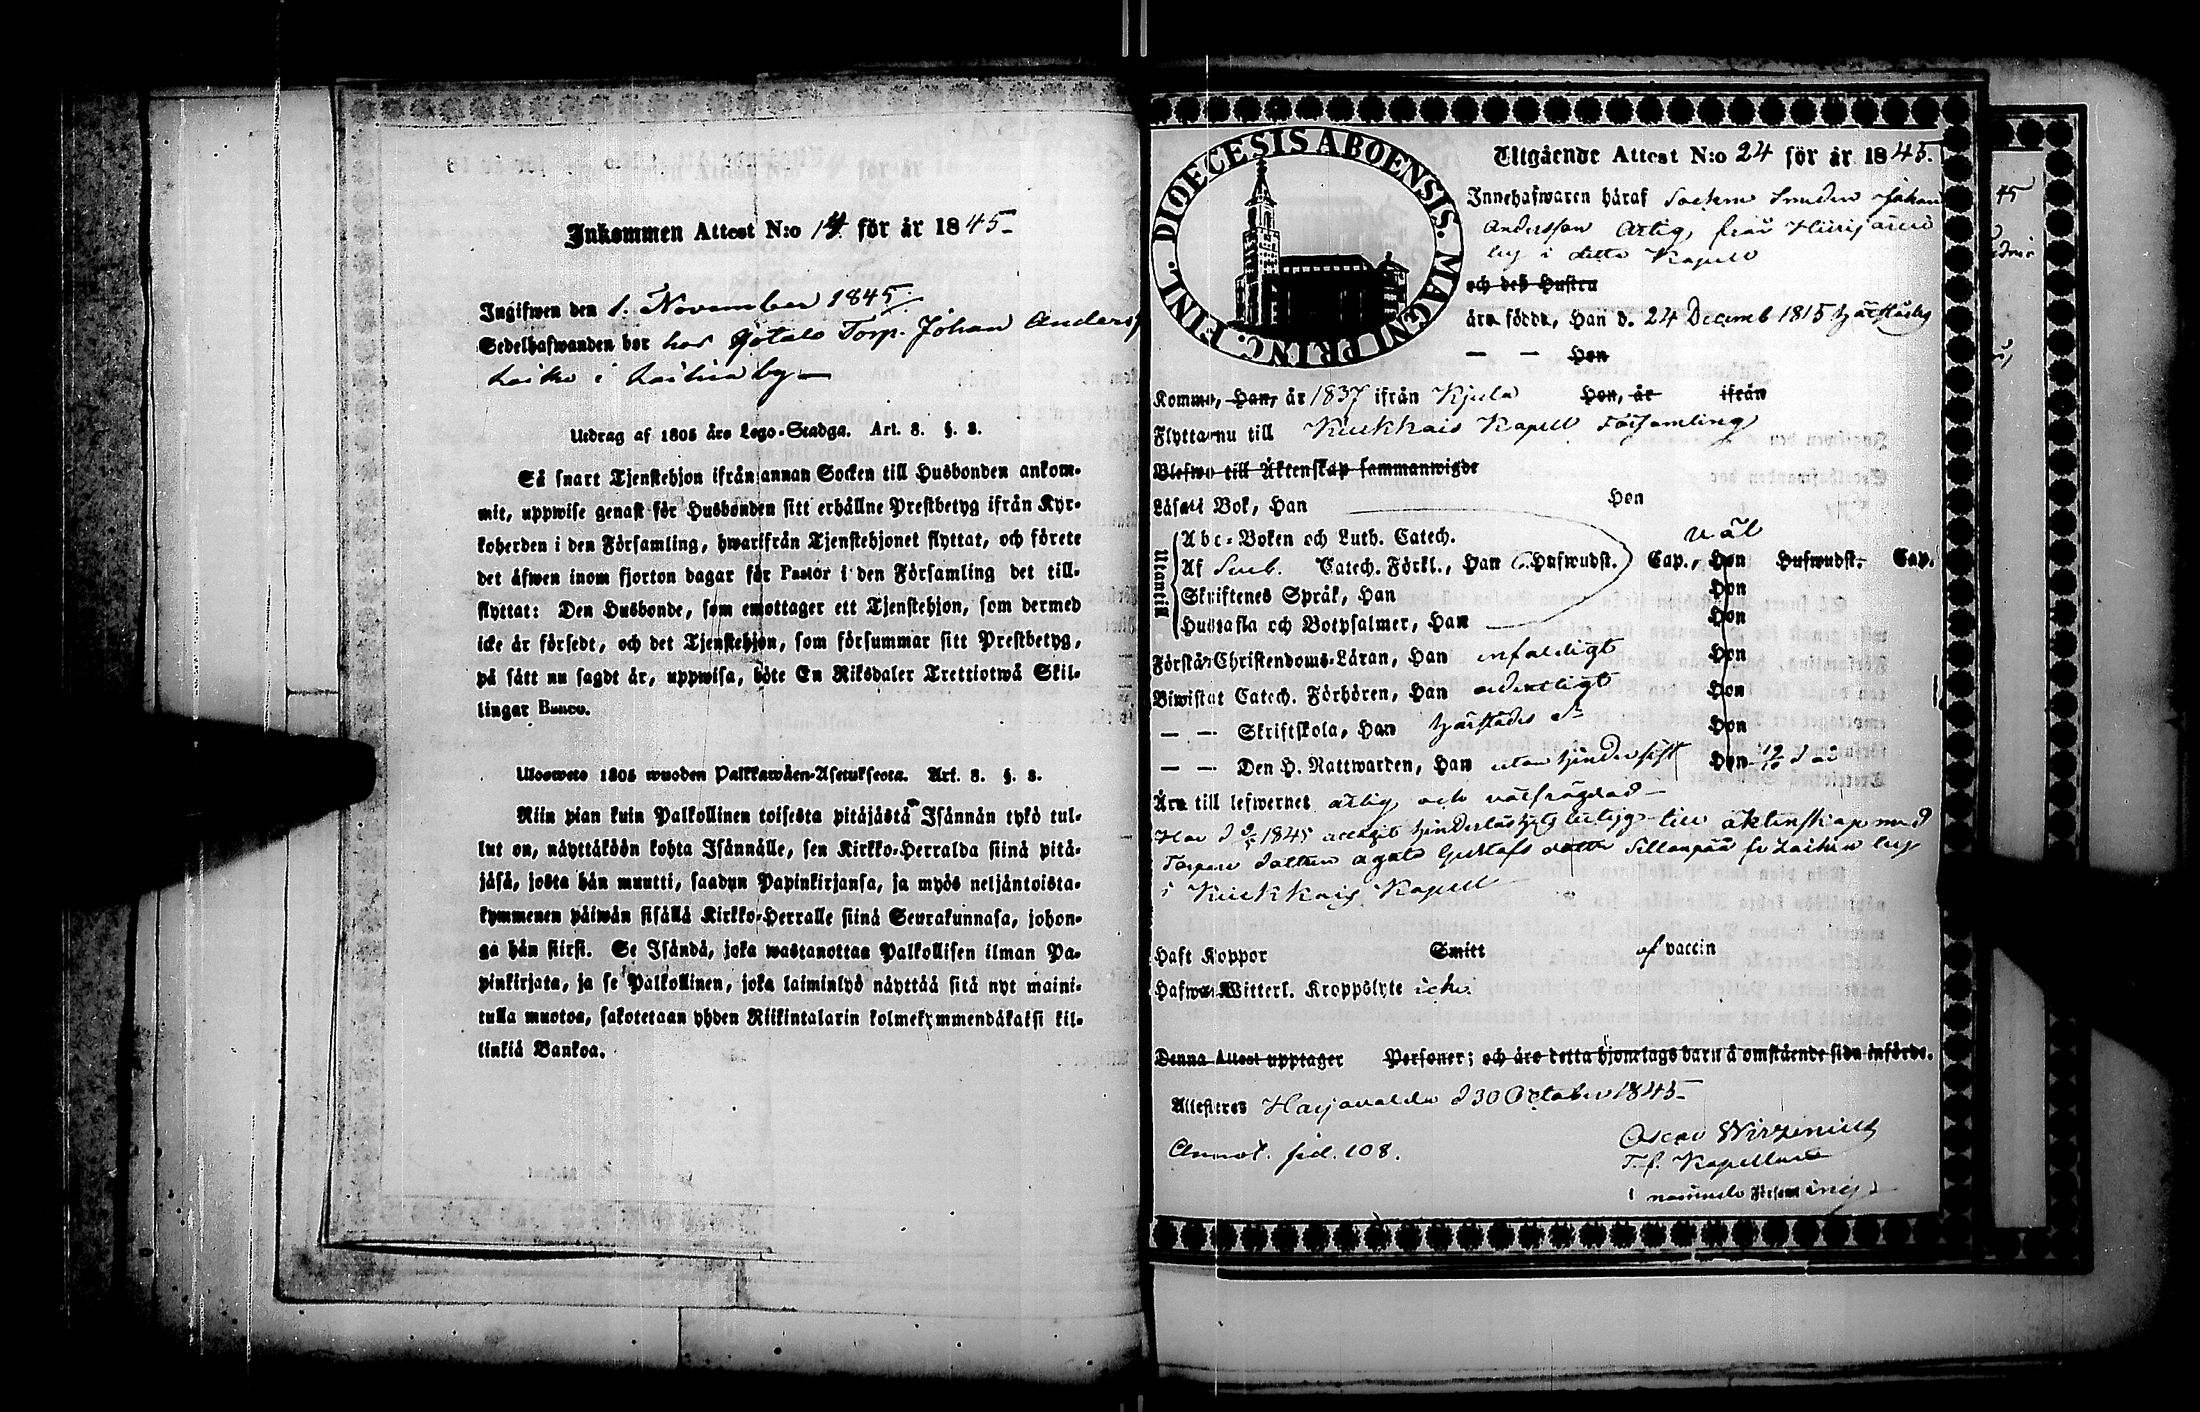 Inkommen Attest N:o 14 för år 1845
Ingifwen den 1. November 1845.
Sedelhafwanden bor hos Götals Torp. Johan Anders
i by
Utdrag af 1805 års Lego-Stadga. Art. 8. §. 8.
Så snart Tjenstehjon ifrån annan Socken till Husbonden ankom-
mit, uppwise genast för Husbonden sitt erhållne Prestbetyg ifrån Kyr-
koherden i den Församling, hwarifrån Tjenstehjonet flyttat, och förete
det äfwen inom fjorton dagar för Pastor i den Församling det till-
flyttat: Den Husbonde, som emottager ett Tjenstehjon, som dermed
icke är försedt, och det Tjenstehjon, som försummar sitt Prestbetyg,
på sätt nu sagdt är, uppwisa, böte En Riksdaler Trettiotwå Skil-
lingar Banco.
Ulosweto 1805 wuoden Palkkawäen-Asetuksesta. Art. 8. §. 8.
Niin pian kuin Palkollinen toisesta pitäjästä Isännän tykö tul-
lut on, näyttäköön kohta Isännälle, sen Kirkko-Herralda siinä pitä-
jäsä, josta hän muutti, saadun Papinkirjansa, ja myös neljäntoista-
kymmenen päiwän sisällä Kirkko-Herralle siinä Seurakunnasa, johon-
ga hän siirsi. Se Isändä, joka wastanottaa Palkollisen ilman Pa-
pinkirjata, ja se Palkollinen, joka laiminlyö näyttää sitä nyt maini-
tulla muotoa, sakotetaan yhden Riikintalarin kolmekymmendäkaksi kil-
linkiä Bankoa.
DIOECESIS ABOENSIS. MAGNI PRINC. FINL.
Utgående Attest N:o 24 för år 1845.
Innehafwaren häraf Socken Smeden Johan
Andersson Artig, från
by i detta Kapell
och deß Hustru
äro födde, Han d. 24 Decemb 1815 härstädes
— — Hon
Kommo, Han, år 1837 ifrån Kjula Hon, år ifrån
Flytta nu till Kiukkais Kapell Församling
Blefwo till Äktenskap sammanwigde
Läsa i Bok, Han Hon
Utantill
Abc-Boken och Luth. Catech. wäl
Af Sweb. Catech. Förkl., Han 6 Hufwudst. Cap., Hon Hufwudst. Cap.
Skriftenes Språk, Han Hon
Hustafla och Botpsalmer, Han Hon
Förstår Christendoms-Läran, Han enfaldigt Hon
Biwistat Catech. Förhören, Han ordentligt Hon
— — Skriftskola, Han härstädes Hon
— — Den H. Nattwarden, Han utan hinder sist Hon 19/10 d. å.
Äro till lefwernet ärlig och wälfrägdad
Har d 1845 hinderslöshets betyg till äktenskap med
Torpare dottren Agata Gustafs dotter Sillanpää fr by
i Kiukkais Kapell
Haft Koppor Smitt af vaccin
Hafwa Witterl. Kroppslyte icke.
Denna Attest upptager Personer; och äro detta hjonelags barn å omstående sida införde.
Attesteras Harjavalda d 30 October 1845
Annot. sid. 108.
Oscar Wirzenius
T. f. Kapellan
i nämnde Församling
45